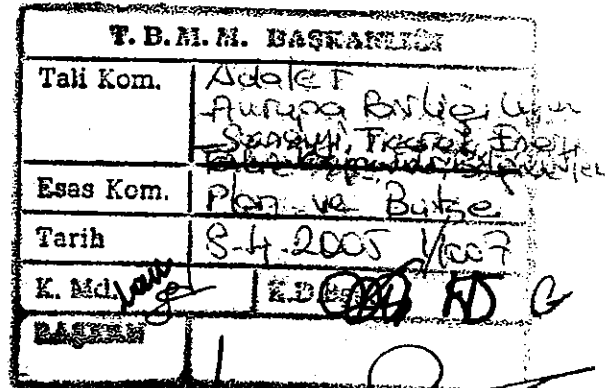 T. B. M. M. BAŞKANLIĞI
Tali Kom. Adalet
Avrupa Birliği Uyum
Sanayi, Ticaret, Enerji
Esas Kom. Plan ve Bütçe
Tarih 8.4.2005 1/1007
K. Md.
BAŞKAN